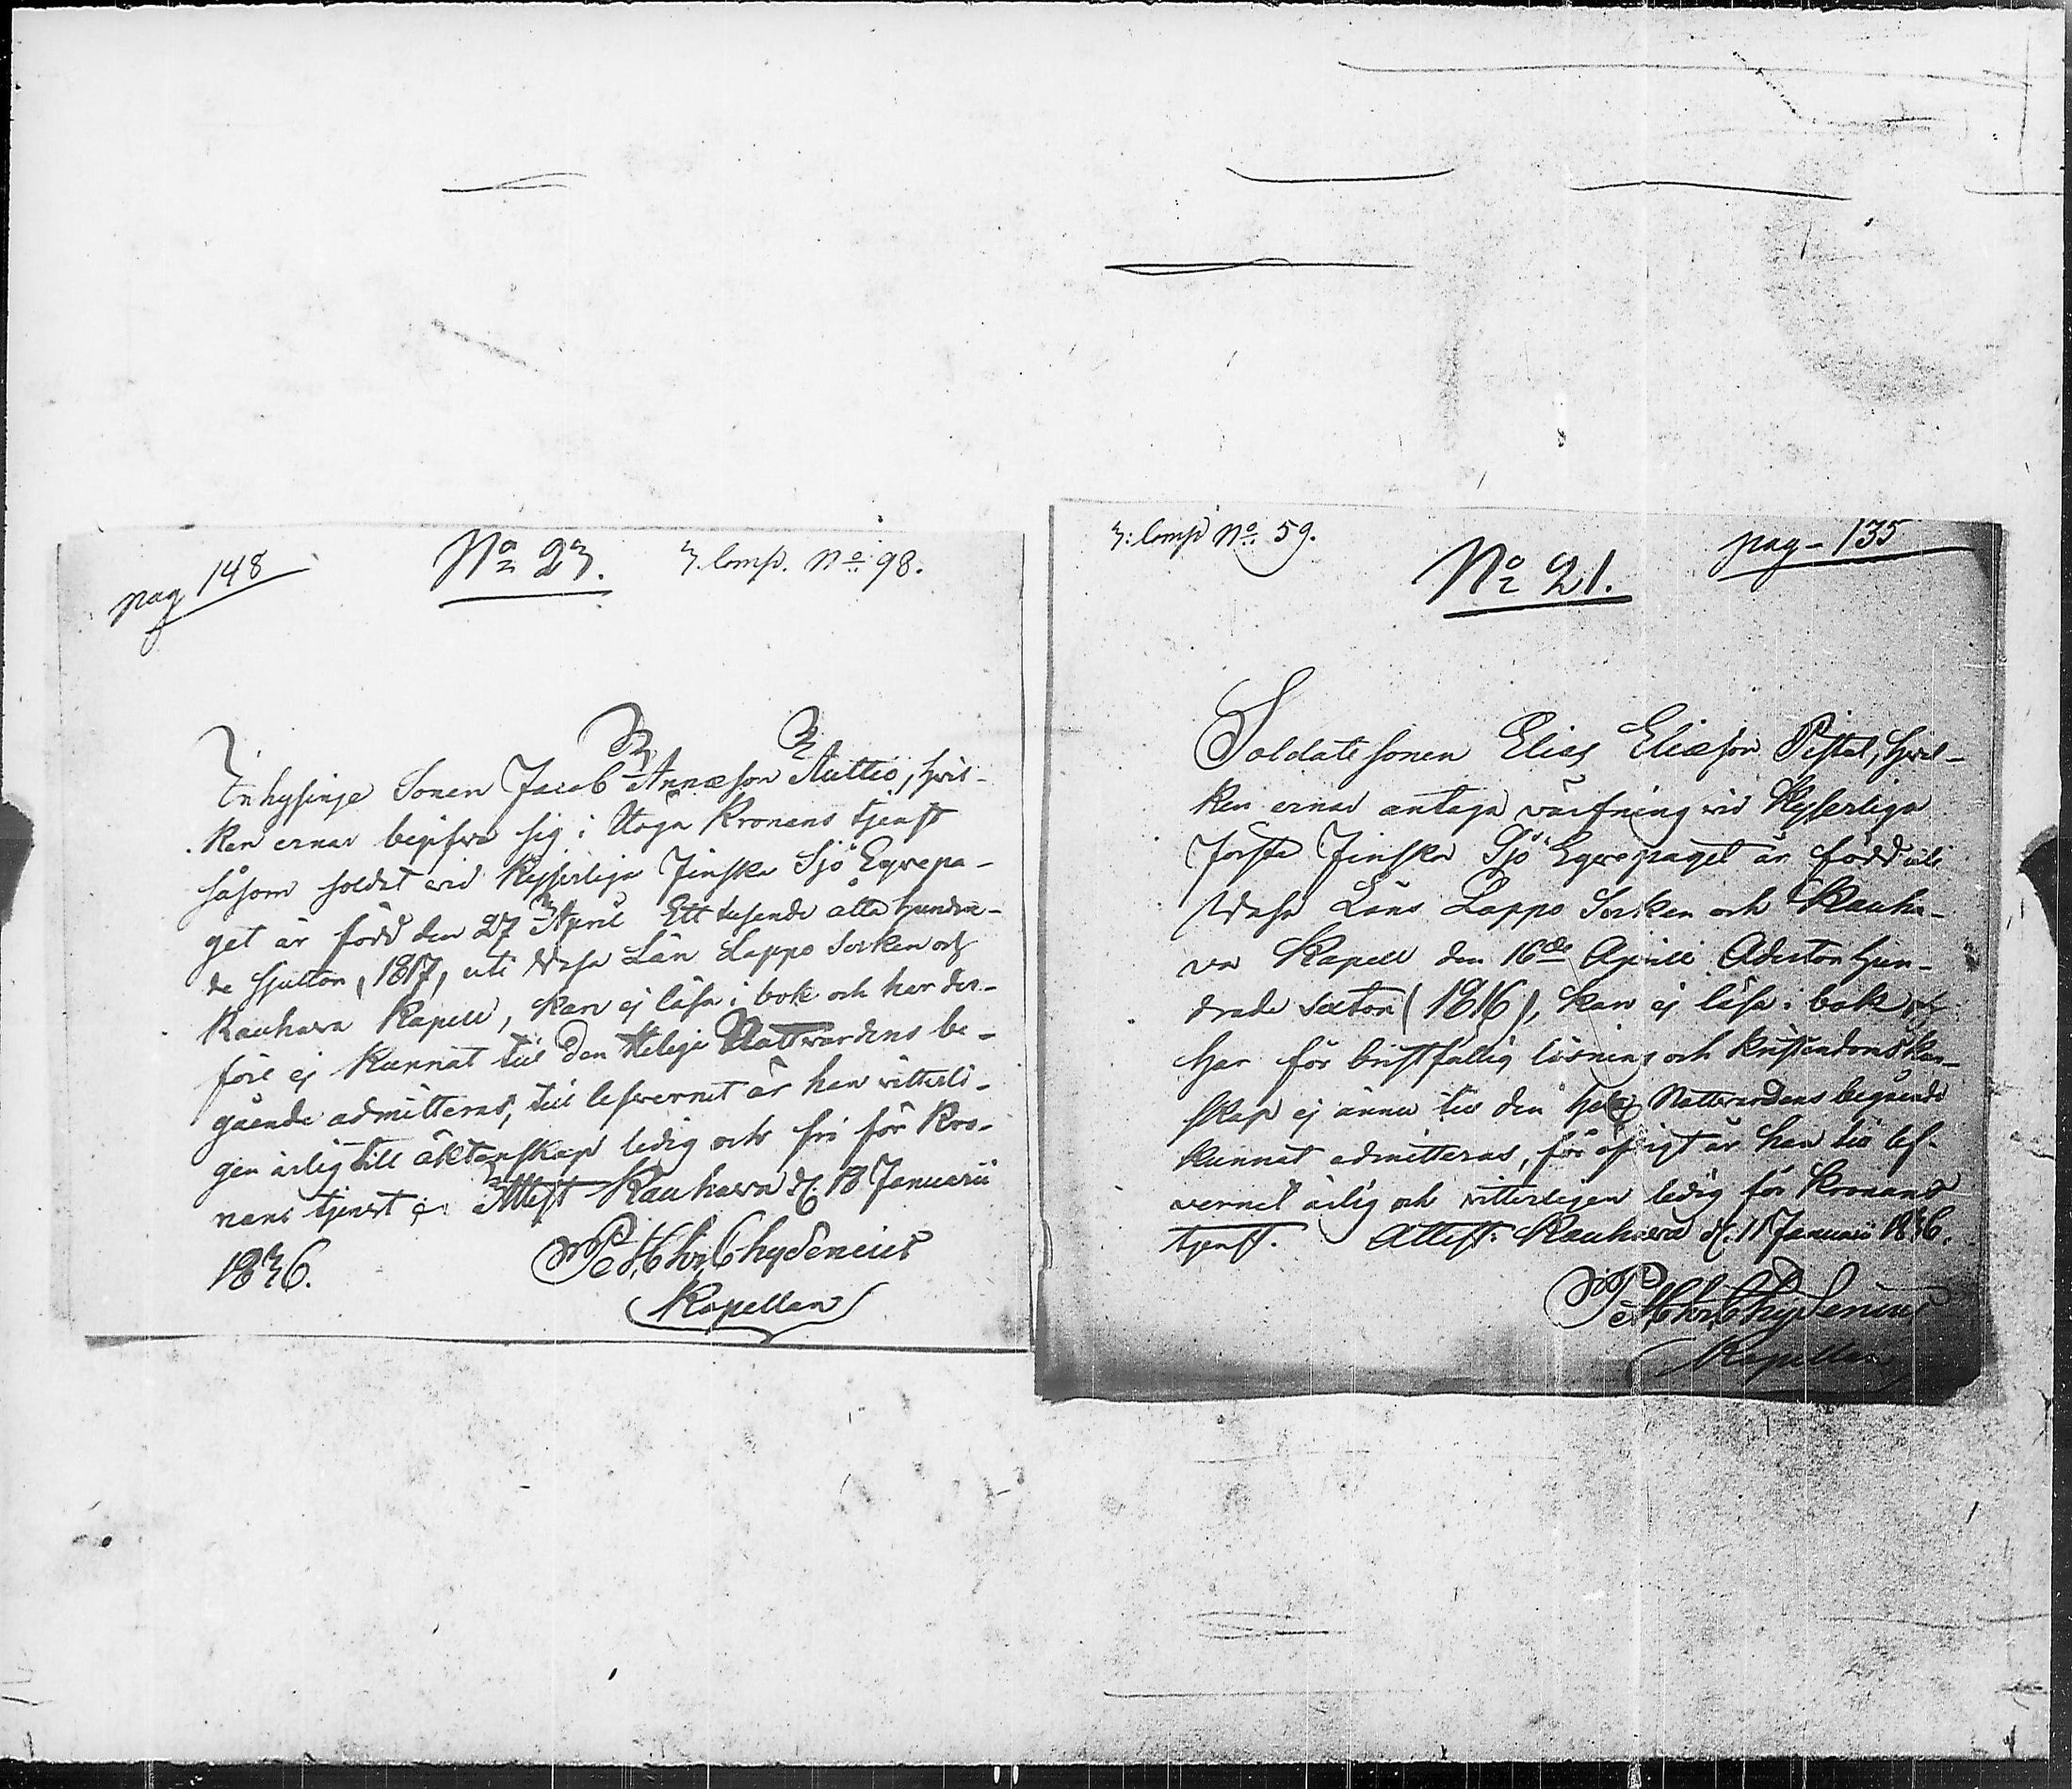 pag 148
No 23.
3. Comp. No: 98.
Inhysinge Sonen Jacob Annæson Auttio, hvil-
ken ernar begifva sig i Höga Kronans tjenst
såsom soldat vid Kejserliga Finska Sjö Eqvepa-
get är född den 27 April Ett tusende åtta hundra-
de sjutton, 1817, uti Wasa Län Lappo Socken och
Kauhava Kapell, kan ej läsa i bok och har der-
före ej kunnat till Den Heliga Nattvardens be-
gående admitteras, till lefvernet är han vitterli-
gen ärlig till äktenskap ledig och fri för Kro-
nans tjenst Attest Kauhava d. 18 Januarii
1836.
Pet. Chr. Chydenius
Kapellan
3: Comp No: 59.
No 21.
pag - 135
Soldatesonen Elias Eliæson Pistol, hvil-
ken ernar antaga värfning vid Kejserliga
Första Finska Sjö Eqvepaget är född uti
Wasa Läns Lappo Socken och Kauha-
va Kapell den 16de Aprill Aderton hun-
drade sexton (1816), kan ej läsa i bok och
har för bristfällig läsning och kristendoms kun-
skap ej ännu till den Nattvardens begående
kunnat admitteras, för öfrigt är han till lef-
vernet ärlig och vitterligen ledig för Kronans
tjenst. Attest. Kauhava d. 11 Januarii 1836.
Pet. Chr. Chydenius
Kapellan